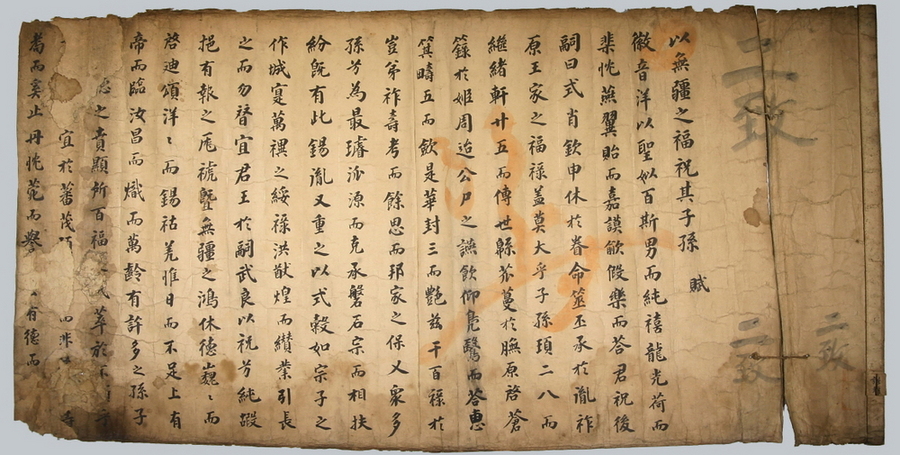 二致
二致
二致
以無疆之福祝其子孫
賦
徽音洋以聖姒百斯男而純禧龍光荷而
棐忱燕翼貽而嘉謨歆假樂而荅君祝後
嗣曰式肖欽申休於眷命丕承於胤祚
原王家之福祿盖莫大乎子孫頊二八而
繼緒軒廿五而傳世緜苽蔓於膴原啓蒼
籙於姬周迨公尸之讌飮仰鳧鷖而荅惠
箕疇五而歛是華封三而艶茲干百祿於
豈弟祚壽考而餘思而邦家之保乂衆多
孫芳為最璿泒源而克承磐石宗而相扶
紛旣有此錫胤又重之以式榖如宗子之
作城寔萬禩之綏祿洪猷煌而纘業引長
之而勿替宜君王於嗣武良以祝芳純嘏
挹有報之厖禠曁無疆之鴻休德巍〻而
啓迪頌洋〻而錫祜羌惟日而不足上有
帝而臨汝昌而熾而萬齡有許多之孫子
之賁顯所百福 萃於不
宜於蕃茂 而非
耈而奚止丹忱 而 有德而